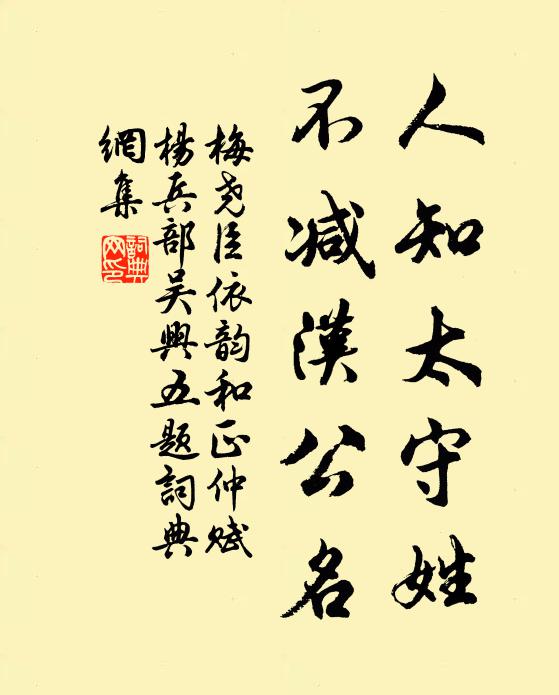 人知太守姓
不减漢公名
梅堯臣依韵和正仲賦
楊兵部吴興五题詞典
網集
詞典網印